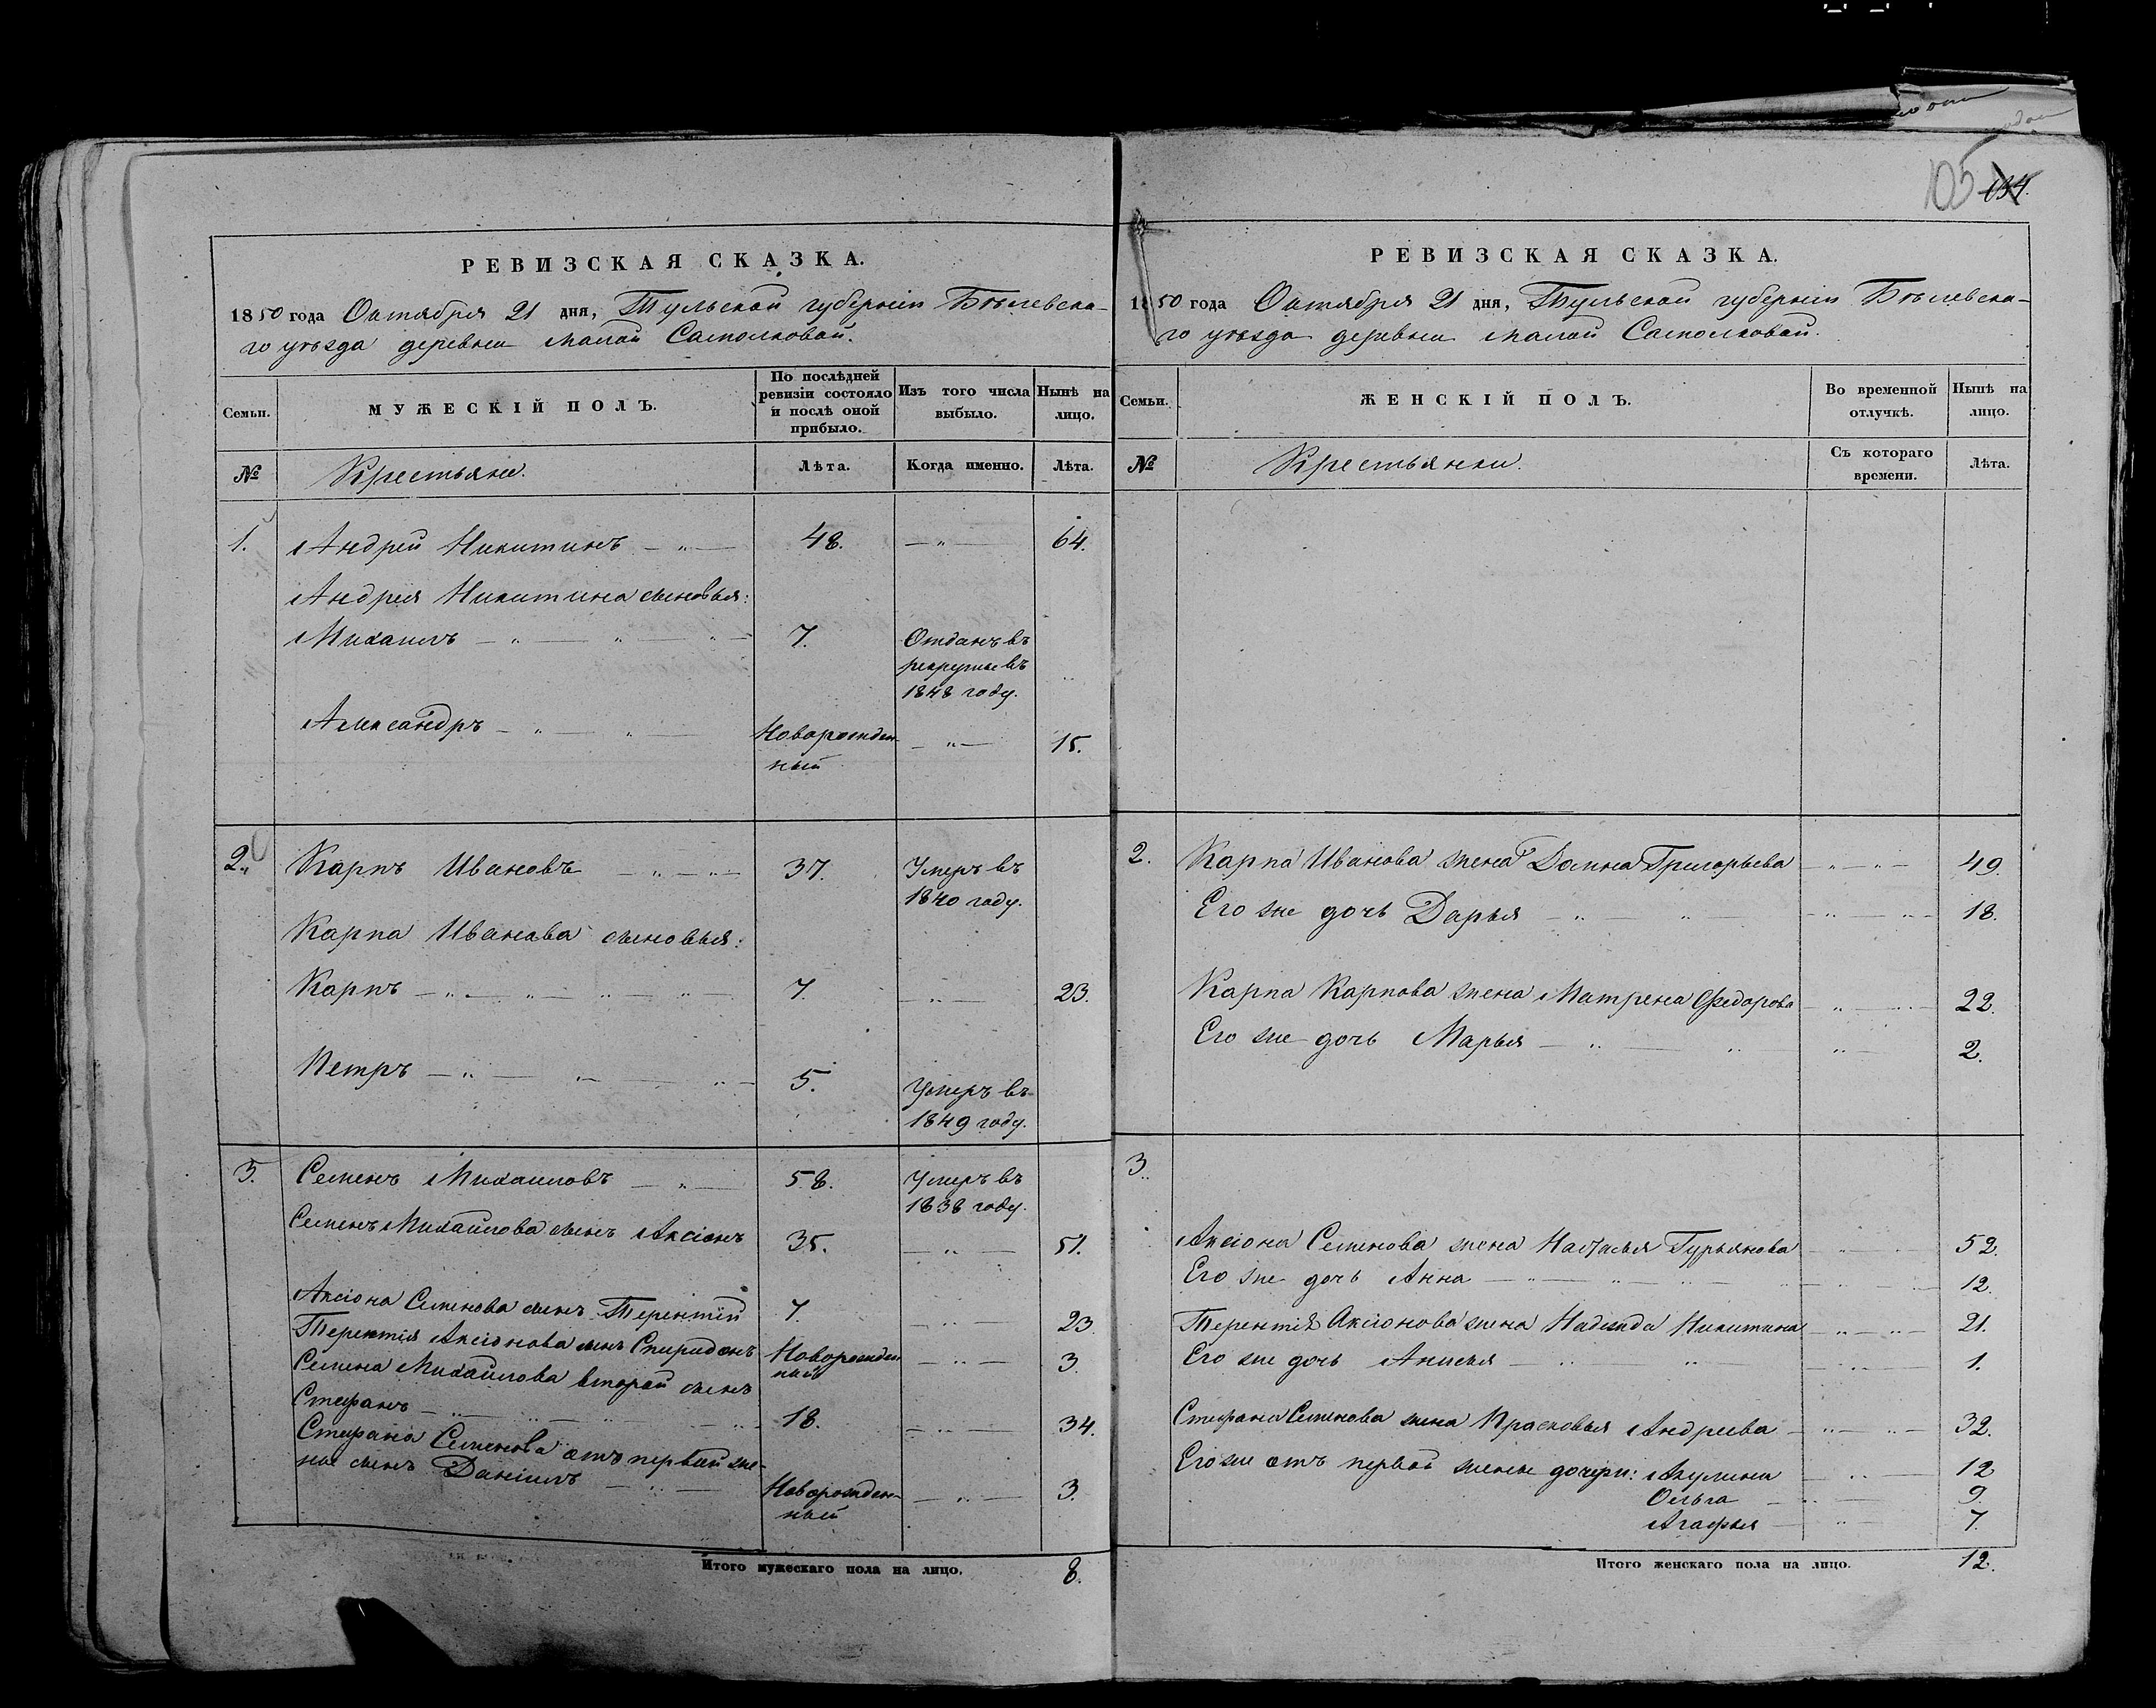 105 134.
РЕВИЗСКАЯ СКАЗКА.
1850 года Октября 21 дня, Тульской губернiи Бѣлевска-
го уѣзда деревни Малой Самолковой.
Семьи.
МУЖЕСКIЙ ПОЛЪ.
По послѣдней ревизiи состояло и послѣ оной прибыло.
Изъ того числа выбыло.
Нынѣ на лицо.
№
Крестьяне.
Лѣта.
Когда именно.
Лѣта.
1. Андрей Никитинъ — " — 48. — " — 64.
Андрея Никитина сыновья:
Михаилъ — " — " — " — 7. Отданъ въ
рекруты въ
1848 году.
Александръ — " — " — Новорожден- — " — 15.
ный
2. Карпъ Ивановъ — " — " — 37. Умеръ въ
1840 году.
Карпа Иванова сыновья:
Карпъ — " — " — " — " — 7. — " — 23.
Петръ — " — " — " — 5. Умеръ въ
1849 году.
3. Семенъ Михаиловъ — " — 58. Умеръ въ
1838 году.
Семенъ Михайлова сынъ Аксiонъ 35. — " — 51.
Аксiона Семенова сынъ Терентiй 7. — " — 23
Терентiя Аксiонова сынъ Спиридонъ Новорожден
ный — " — 3.
Семена Михайлова второй сынъ
Стефанъ — " — " — " — " — 18. — " — 34.
Стефана Семенова отъ первой же-
ны сынъ Данiилъ — " — Новорожден-
ный — " — 3.
Итого мужескаго пола на лицо. 8.
РЕВИЗСКАЯ СКАЗКА.
1850 года Октября 21 дня, Тульской губернiи Бѣлевска-
го уѣзда деревни Малой Самолковой.
Семьи.
ЖЕНСКIЙ ПОЛЪ.
Во временной отлучкѣ.
Нынѣ на лицо.
№
Крестьянки.
Съ котораго времени.
Лѣта.
2. Карпа Иванова жена Домна Григорьева — " — " — 49.
Его же дочь Дарья — " — " — " — " — 18.
Карпа Карпова жена Матрена Федорова — " — " — 22.
Его же дочь Марья — " — " — " — 2.
3.
Аксiона Семенова жена Наталья Гурьянова — " — 52.
Его же дочь Анна — " — " — " — " — 12.
Терентiя Аксiонова жена Надежда Никитина — " — " — 21.
Его же дочь Анисья — " — " — " — 1.
Стефана Семенова жена Прасковья Андреева — " — " — 32.
Его же отъ первой жены дочери: Акулина — " — 12
Ольга — " — 9.
Агафья — " — 7.
Итого женскаго пола на лицо. 12.